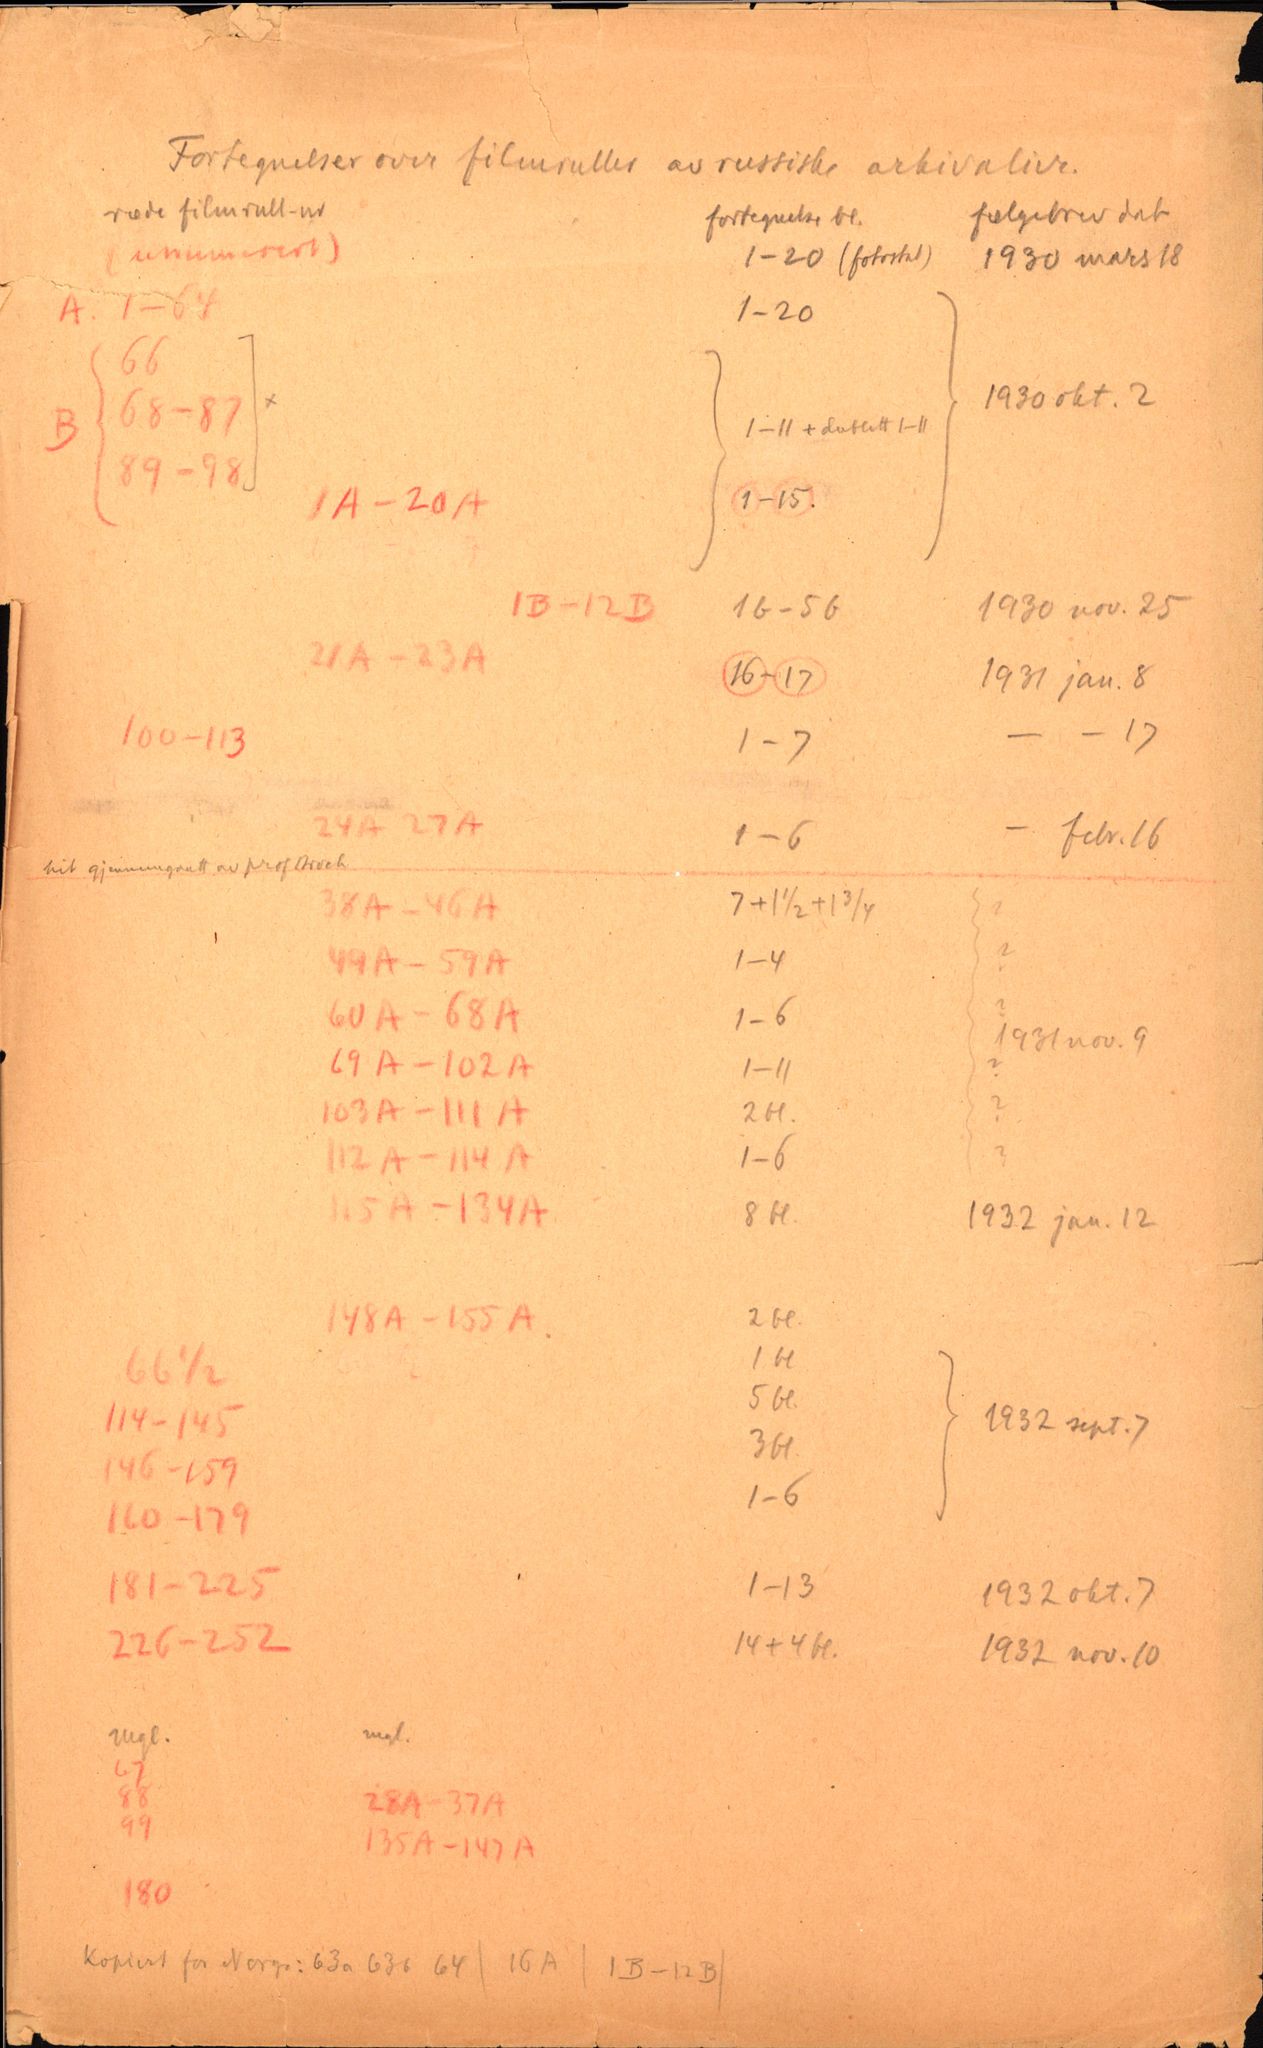 Fortegnelser over filmruller av russiske arkivalier.
røde filmrull-nr fortegnelse bl. følgebrev dat
(unummerert) 1-20 (fotostat) 1930 mars 18
A. 1-64 1-20
B 66
68-87 x 1-11 + dublett 1-11 1930 okt. 2
89-98
1A-20A 1-15.
1B-12B 16-56 1930 nov. 25
21A-23A 16-17 1931 jan. 8
100-113 1-7 — - 17
24A 27A 1-6 - febr. 16
hit gjennemgaatt av prof
38A-46A 7+1½+1¾ ?
49A-59A 1-4 ?
60A-68A 1-6 ?
1931 nov. 9
69A-102A 1-11 ?
103A-111A 2 bl. ?
112A-114A 1-6 ?
115A-134A 8 bl. 1932 jan. 12
148A-155A. 2 bl.
66½ 1 bl
114-145 5 bl. 1932 sept. 7
146-159 3 bl.
160-179 1-6
181-225 1-13 1932 okt. 7
226-252 14+4 bl. 1932 nov. 10
mgl. mgl.
67
88 28A-37A
99 135A-147A
180
Kopiert for Norge: 63a 63b 64 | 16A | 1B-12B |